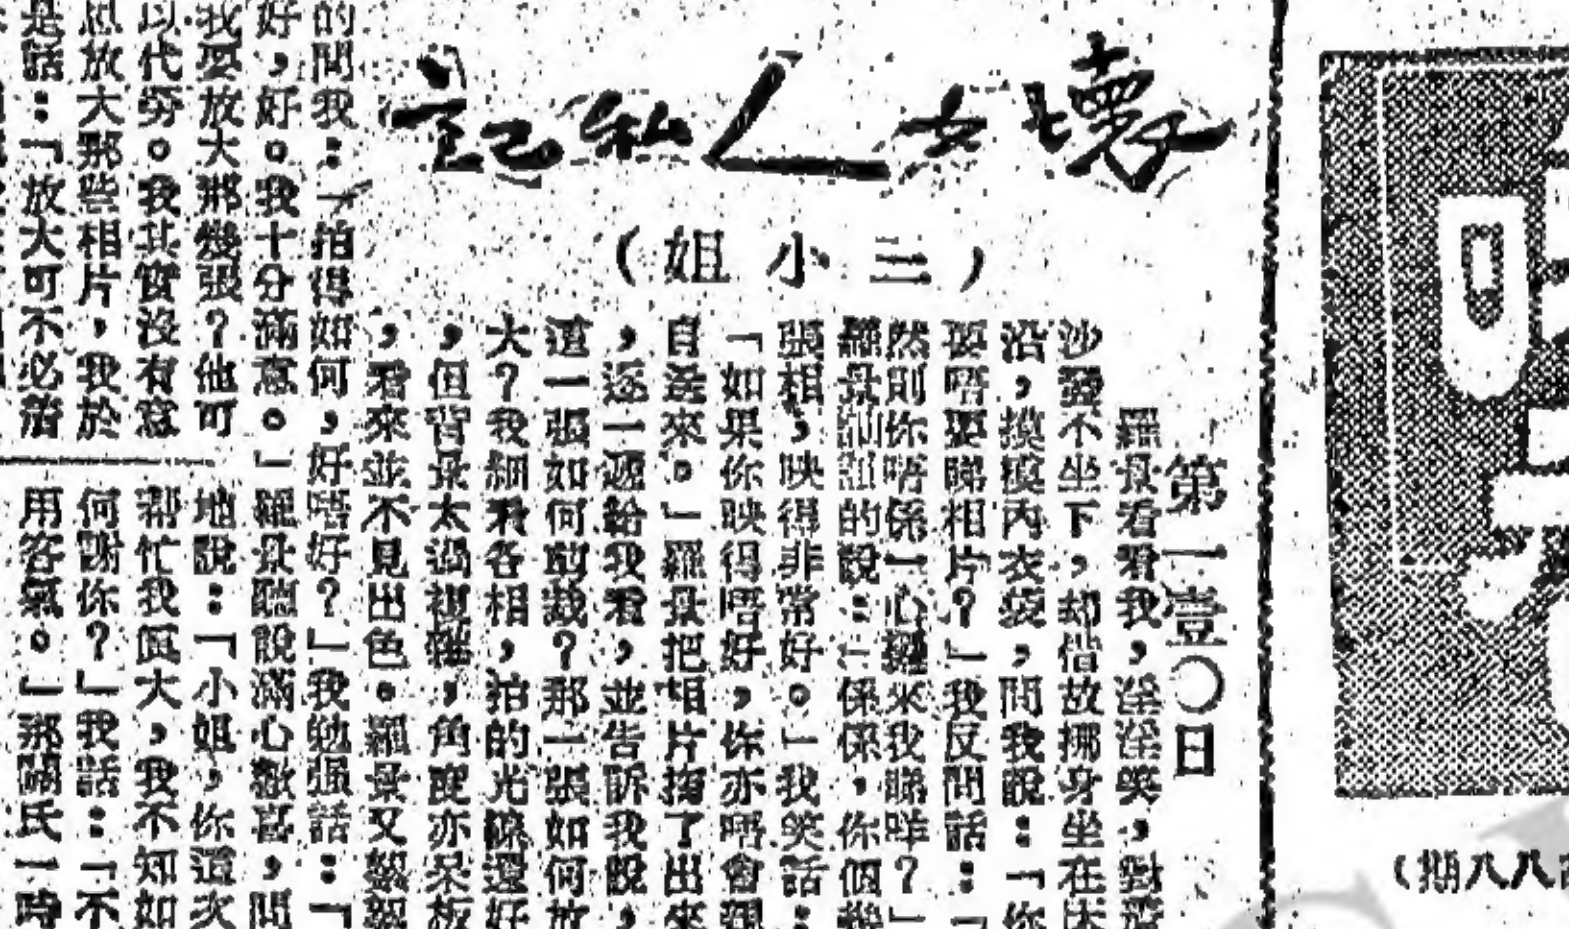 壞女人私記
（三小姐）
第一壹〇日
羅景看看我，淫淫笑，對這
沙發不坐下，却借故挪身坐在床
沿，摸摸內衣袋，問我說：「你
要唔要睇相片？」我反問話：「
然則你唔係一心攞來我睇咩？」
羅景訕訕的說：「係係，你個幾
張相，映得非常好。」我笑話：
「如果你映得唔好，你亦唔會親
自送來。」羅景把相片掏了出來
，逐一遞給我看，並告訴我說，
這一張如何剪裁？那一張如何放
大？我細看各相，拍的光線還好
，但背景太過複雜，角度亦呆板
，看來並不見出色。羅景又親親
的問我：「拍得如何，好唔好？」我勉强話：「
好，好。我十分滿意。」羅景聽說滿心歡喜，問
我要放大那幾張？他可
以代勞。我其實沒有意
思放大那些相片，我於
是話：「放大可不必啦
地說：「小姐，你這次
幫忙我叵大，我不知如
何謝你？」我話：「不
用客氣。」那關氏一時
八八期）